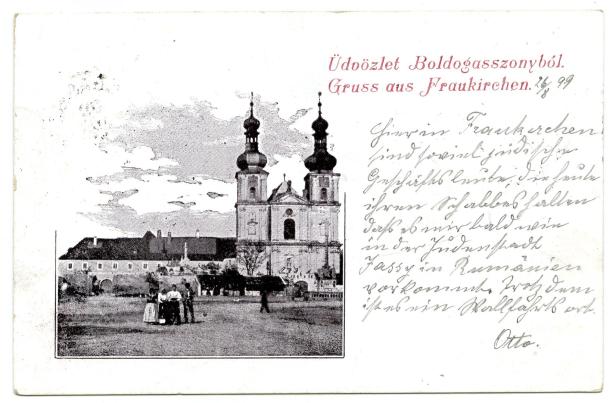 Üdvözlet Boldogasszonyból.
Gruss aus Fraukirchen. 26/8 99
Hier in Fraukirchen
sind soviel jüdische
Geschäftsleute, die heute
ihren Schabbes halten
dass es mir bald wie
in der Judenstadt
Jassy in Rumänien
vorkommt. Trotzdem
ist es ein Wallfahrtsort.
Otto.